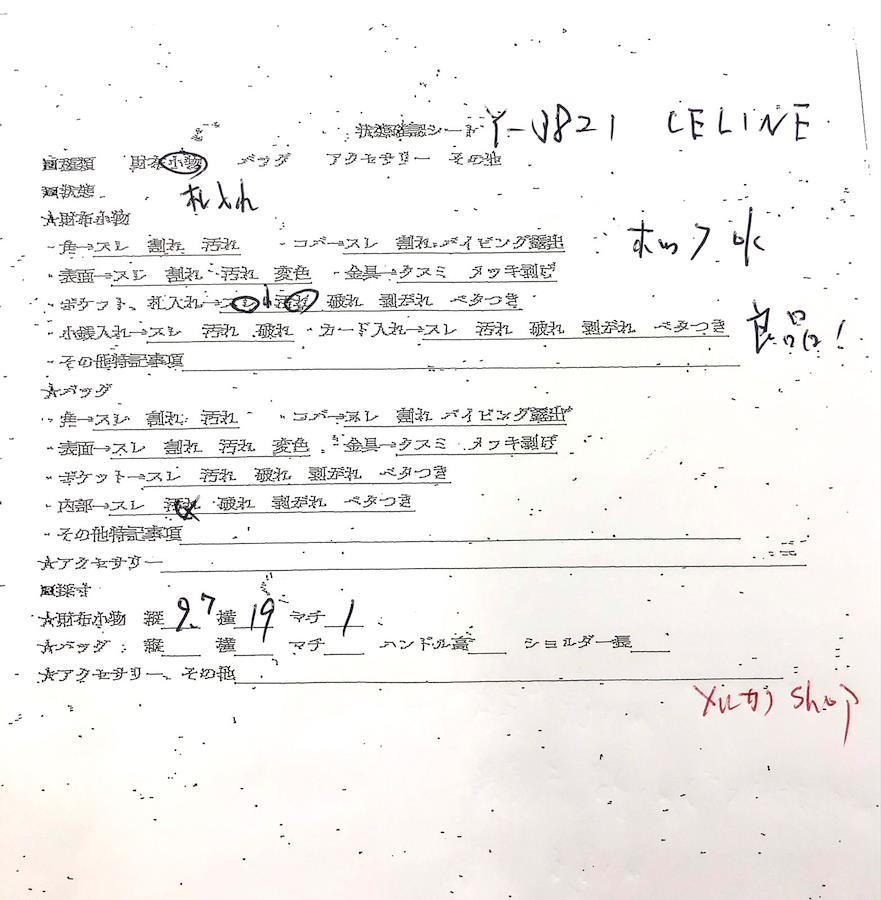 状態確認シート Y-0821 CELINE
■種類 財布小物 バッグ アクセサリー その他
■状態 札入れ
★財布小物
・角→スレ 割れ 汚れ ・コバ→スレ 割れ パイピング露出
ホック ok
・表面→スレ 割れ 汚れ 変色 ・金具→クスミ メッキ剥げ
・ポケット、札入れ→スレ 小 汚れ 破れ 剥がれ ベタつき
・小銭入れ→スレ 汚れ 破れ ・カード入れ→スレ 汚れ 破れ 剥がれ ベタつき
良品!
・その他特記事項
★バッグ
・角→スレ 割れ 汚れ ・コバ→スレ 割れ パイピング露出
・表面→スレ 割れ 汚れ 変色 ・金具→クスミ メッキ剥げ
・ポケット→スレ 汚れ 破れ 剥がれ ベタつき
・内部→スレ 汚れ 破れ 剥がれ ベタつき
・その他特記事項
★アクセサリー
■採寸
★財布小物 縦 9.7 横 19 マチ 1
★バッグ: 縦 横 マチ ハンドル高 ショルダー長
★アクセサリー、その他
メルカリ Shop